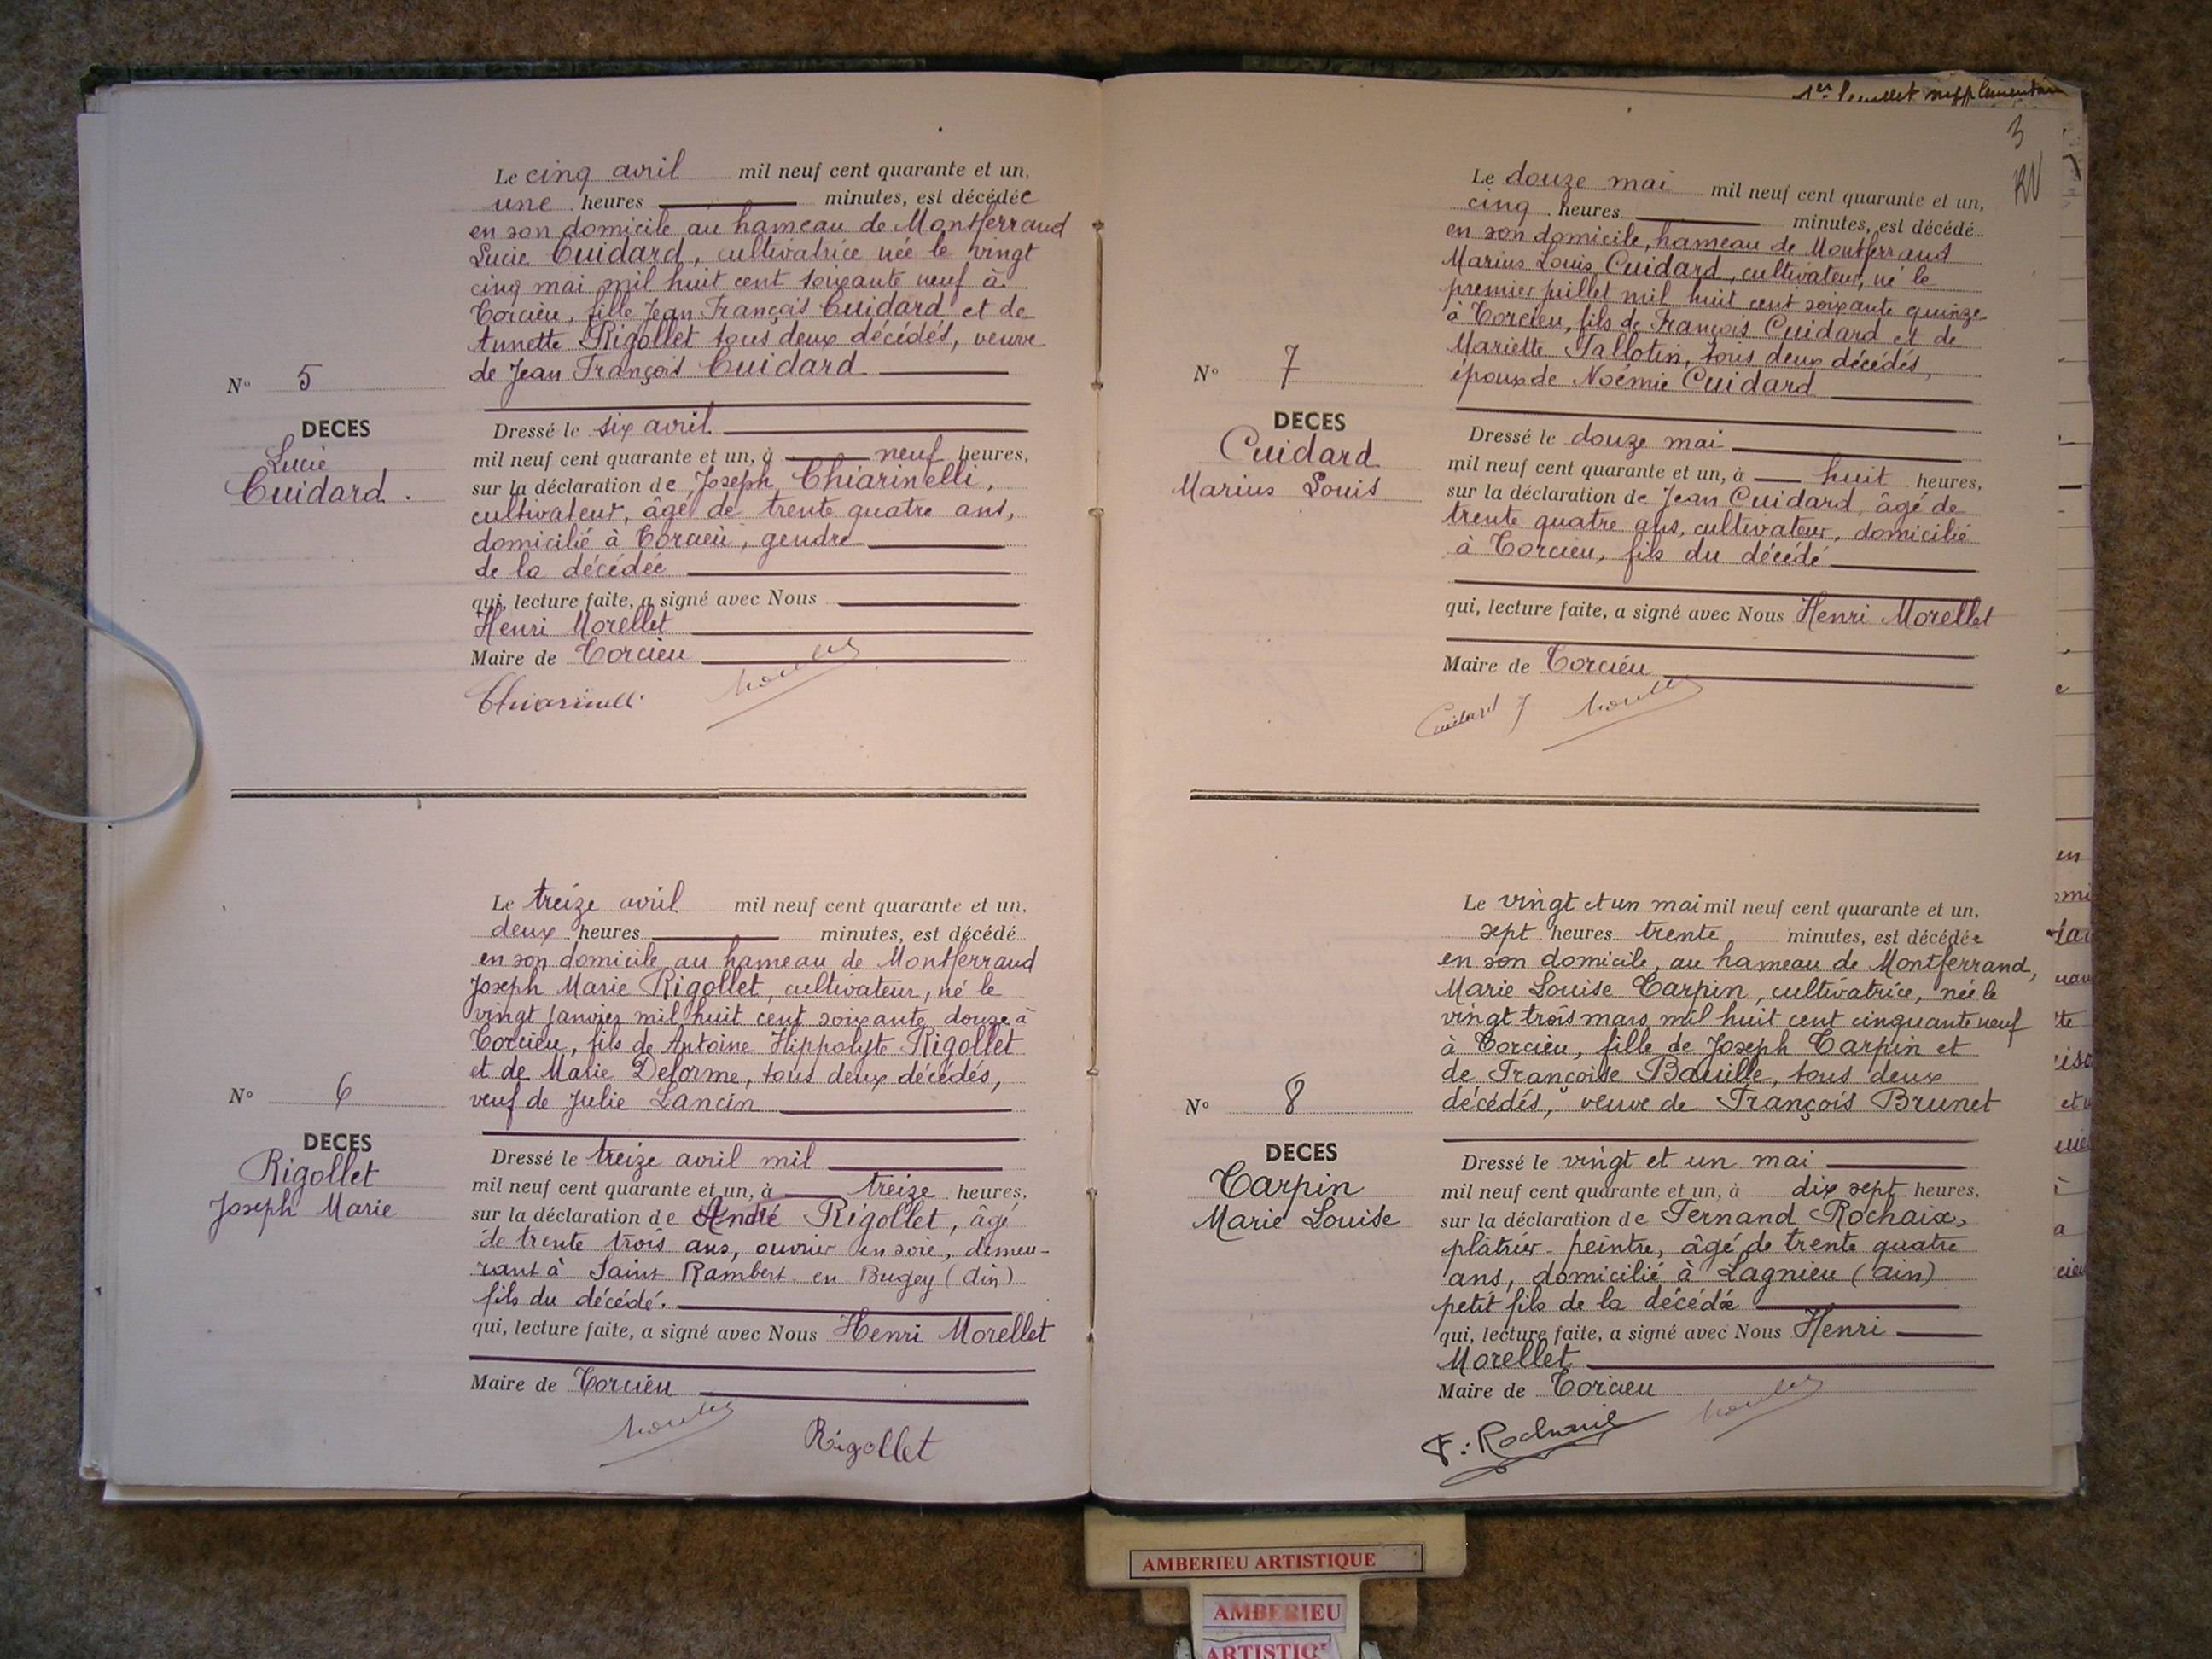 Le cinq avril mil neuf cent quarante et un,
une heures minutes, est décédée
en son domicile au hameau de Montferrand
Lucie Cuidard, cultivatrice née le vingt
cinq mai mil huit cent soixante neuf à
Torcieu, fille Jean François Cuidard et de
Annette Rigollet tous deux décédés, veuve
de Jean François Cuidard
N° 5
DECES
Lucie
Cuidard.
Dressé le six avril
mil neuf cent quarante et un, à neuf heures,
sur la déclaration de Joseph Chiarinelli,
cultivateur, âgé de trente quatre ans,
domicilié à Torcieu, gendre
de la décédée
qui, lecture faite, a signé avec Nous
Henri Morellet
Maire de Torcieu
Chiarinelli
Le treize avril mil neuf cent quarante et un,
deux heures minutes, est décédé
en son domicile au hameau de Montferrand
Joseph Marie Rigollet, cultivateur, né le
vingt janvier mil huit cent soixante douze à
Torcieu, fils de Antoine Hippolyte Rigollet
et de Marie Delorme, tous deux décédés,
veuf de Julie Lancin
N° 6
DECES
Rigollet
Joseph Marie
Dressé le treize avril mil
mil neuf cent quarante et un, à treize heures,
sur la déclaration de André Rigollet, âgé
de trente trois ans, ouvrier en soie, demeu-
rant à Saint Rambert en Bugey (Ain)
fils du décédé.
qui, lecture faite, a signé avec Nous Henri Morellet
Maire de Torcieu
Rigollet
1er feuillet supplémentaire
3
Le douze mai mil neuf cent quarante et un,
cinq heures minutes, est décédé
en son domicile, hameau de Montferrand
Marius Louis Cuidard, cultivateur, né le
premier juillet mil huit cent soixante quinze
à Torcieu, fils de François Cuidard et de
Mariette Tallotin, tous deux décédés,
époux de Noémie Cuidard
N° 7
DECES
Cuidard
Marius Louis
Dressé le douze mai
mil neuf cent quarante et un, à huit heures,
sur la déclaration de Jean Cuidard, âgé de
trente quatre ans, cultivateur, domicilié
à Torcieu, fils du décédé
qui, lecture faite, a signé avec Nous Henri Morellet
Maire de Torcieu
Cuidard J
Le vingt et un mai mil neuf cent quarante et un,
sept heures trente minutes, est décédée
en son domicile, au hameau de Montferrand,
Marie Louise Carpin, cultivatrice, née le
vingt trois mars mil huit cent cinquante neuf
à Torcieu, fille de Joseph Carpin et
de Françoise Bauille, tous deux
décédés, veuve de François Brunet
N° 8
DECES
Carpin
Marie Louise
Dressé le vingt et un mai
mil neuf cent quarante et un, à dix sept heures,
sur la déclaration de Fernand Rochaix,
plâtrier-peintre, âgé de trente quatre
ans, domicilié à Lagnieu (ain)
petit fils de la décédée
qui, lecture faite, a signé avec Nous Henri
Morellet
Maire de Torcieu
F: Rochaix
AMBERIEU ARTISTIQUE
AMBERIEU
ARTISTIQ